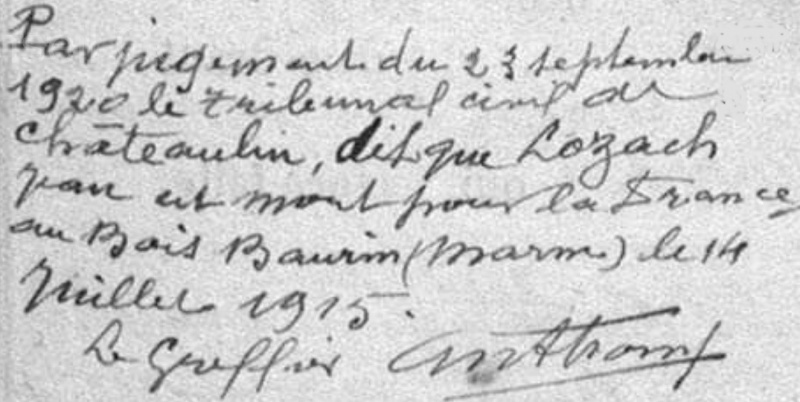 Par jugement du 23 septembre
1920 le tribunal civil de
Châteaulin, dit que Lozach
Jean est mort pour la France
au Bois Baurin (Marne) le 14
Juillet 1915.
Le Greffier